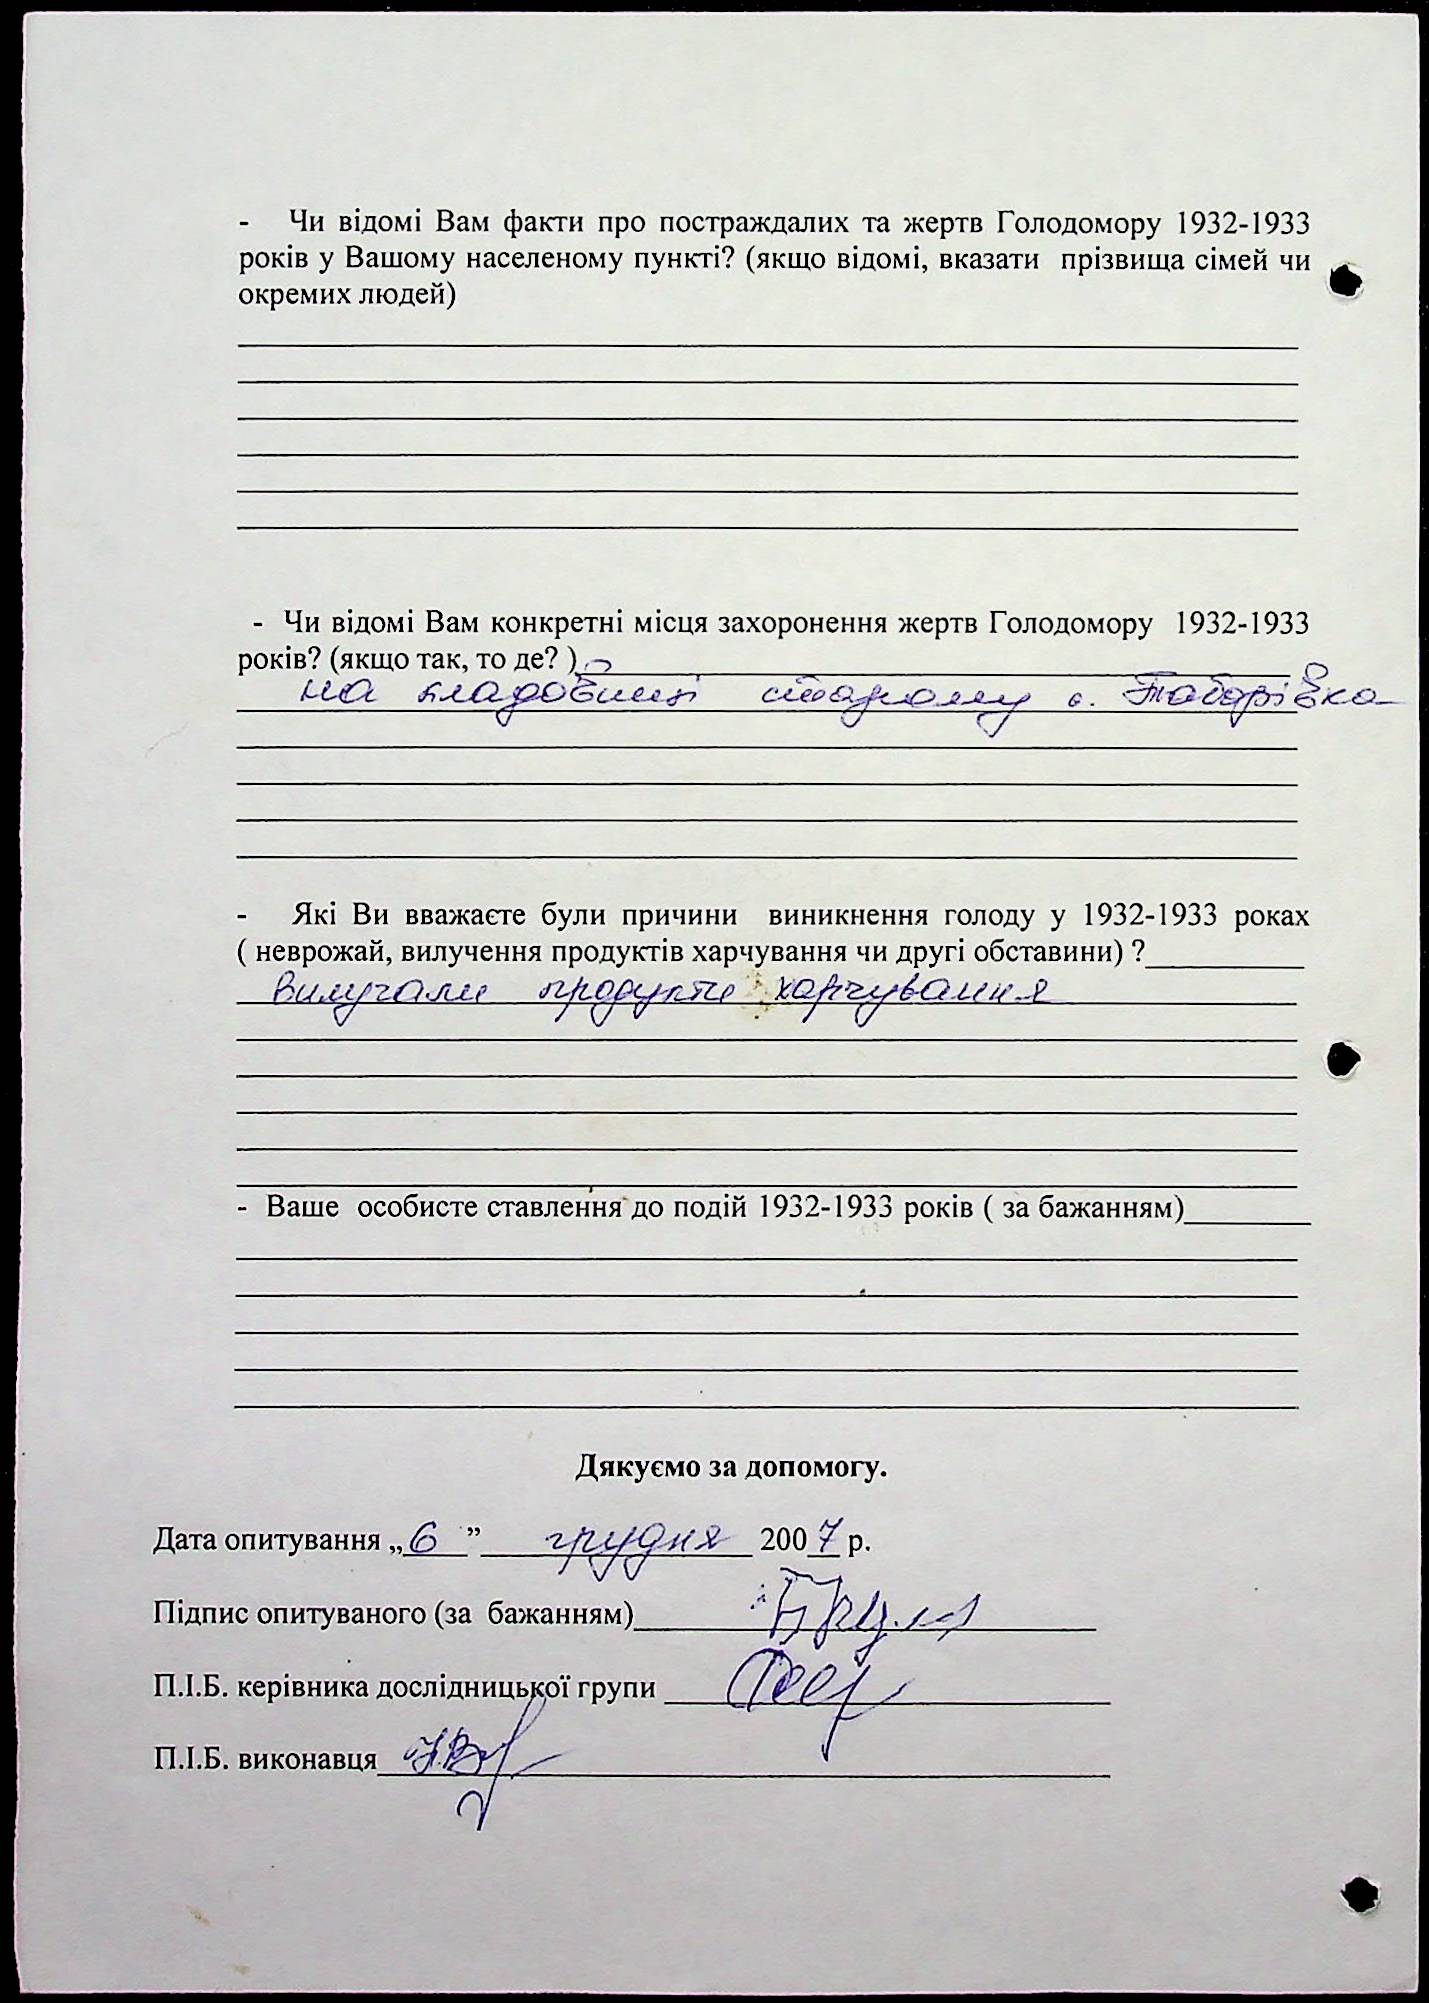 - Чи відомі Вам факти про постраждалих та жертв Голодомору 1932-1933
років у Вашому населеному пункті? (якщо відомі, вказати прізвища сімей чи
окремих людей)
- Чи відомі Вам конкретні місця захоронення жертв Голодомору 1932-1933
років? (якщо так, то де? )
на кладовищі старому с. Таборівка
- Які Ви вважаєте були причини виникнення голоду у 1932-1933 роках
( неврожай, вилучення продуктів харчування чи другі обставини) ?
Вилучали продукти харчування
- Ваше особисте ставлення до подій 1932-1933 років ( за бажанням)
Дякуємо за допомогу.
Дата опитування „6” грудня 2007 р.
Підпис опитуваного (за бажанням)
П.І.Б. керівника дослідницької групи
П.І.Б. виконавця